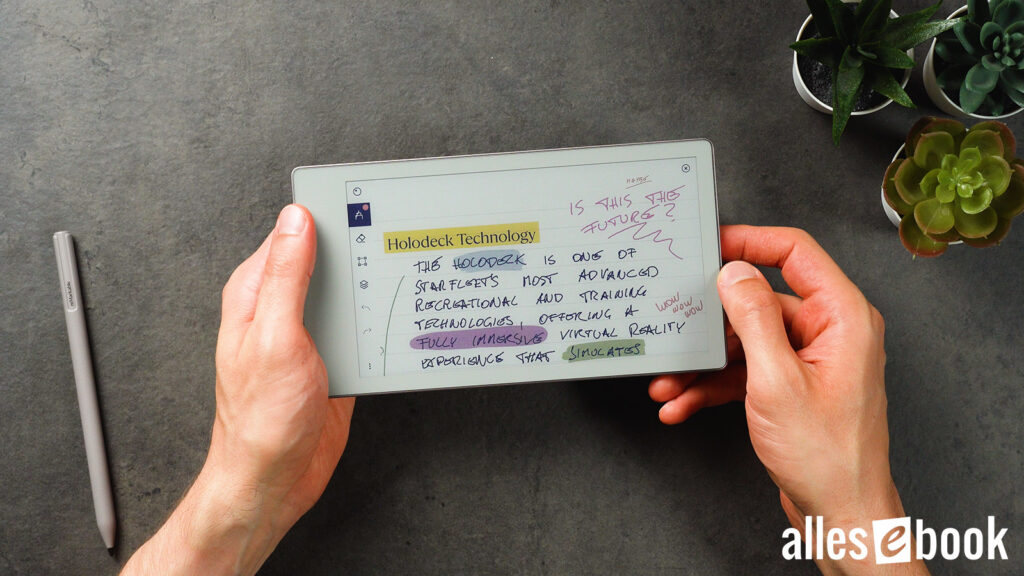 IS THIS THE
FUTURE?
Holodeck Technology
THE HOLODECK IS ONE OF
STARFLEET'S MOST ADVANCED
RECREATIONAL AND TRAINING
TECHNOLOGIES, OFFERING A
WOW
WOW
WOW
FULLY IMMERSIVE VIRTUAL REALITY
EXPERIENCE THAT SIMULATES
allesebook